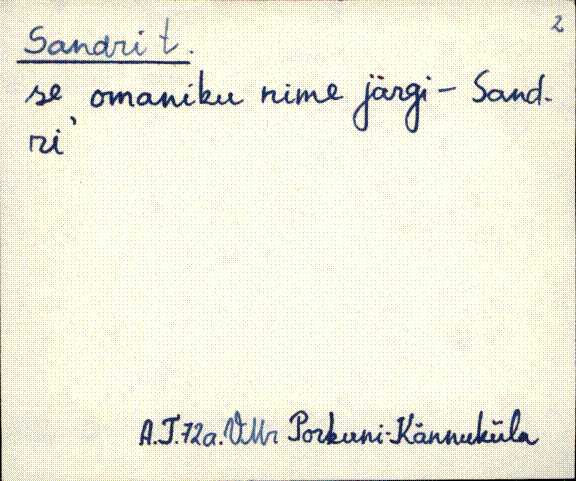 2
Sandri t.
se omaniku nime järgi - Sand-
ri'
A.T.72a. VMr Porkuni-Kännuküla